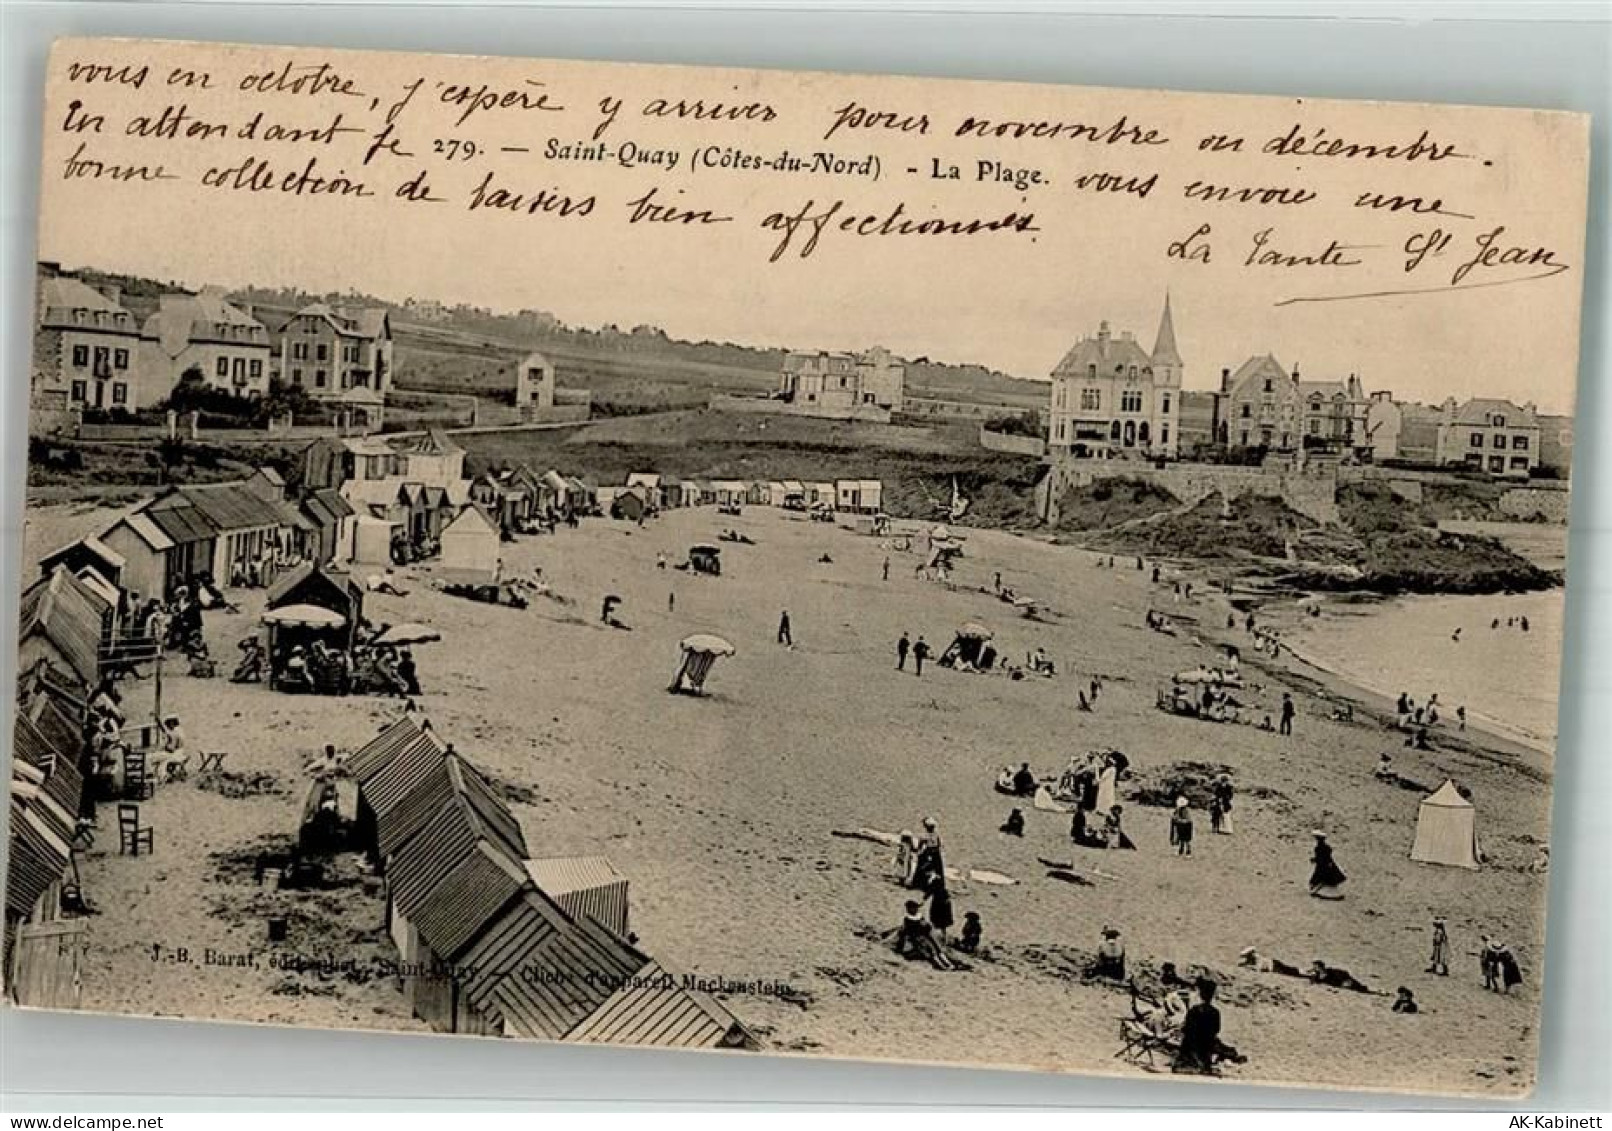 vous en octobre, j'espère y arriver pour novembre ou décembre.
En attendant je vous envoie une
279. — Saint-Quay (Côtes-du-Nord) - La Plage.
bonne collection de baisers bien affectionnés.
La Tante St Jean
J.-B. Barat, édit. phot., Saint-Quay. — Cliché d'appareil Mackenstein.
AK-Kabinett